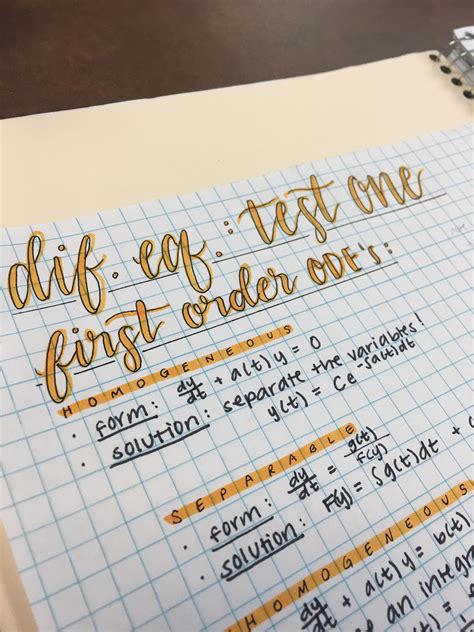 dif. eq.: test one
first order ODE's:
HOMOGENEOUS
· form: dy/dt + a(t)y = 0
· solution: separate the variables!
y(t) = Ce^-∫a(t)dt
SEPARABLE
· form: dy/dt = g(t)/f(y)
· solution: F(y) = ∫g(t)dt +
HOMOGENEOUS
dy/dt + a(t)y = b(t)
an integ